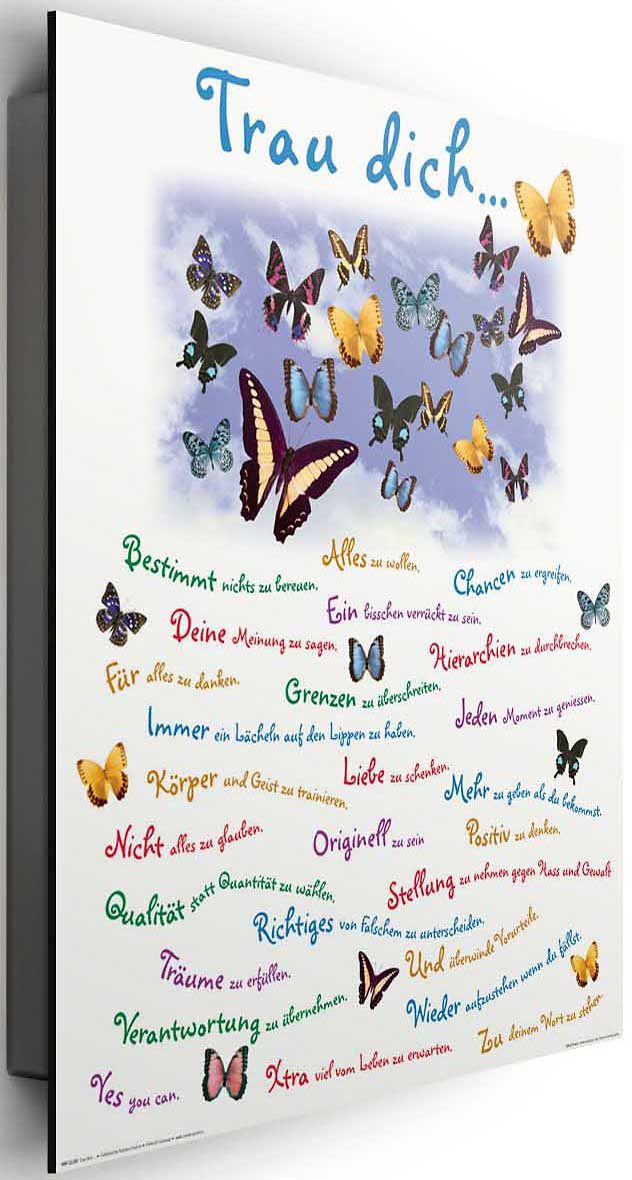 Trau dich...
Alles zu wollen.
Bestimmt nichts zu bereuen.
Chancen zu ergreifen.
Ein bisschen verrückt zu sein.
Deine Meinung zu sagen.
Hierarchien zu durchbrechen.
Für alles zu danken.
Grenzen zu überschreiten.
Jeden Moment zu geniessen.
Immer ein Lächeln auf den Lippen zu haben.
Liebe zu schenken.
Körper und Geist zu trainieren.
Mehr zu geben als du bekommst.
Nicht alles zu glauben.
Originell zu sein
Positiv zu denken.
Qualität statt Quantität zu wählen.
Stellung zu nehmen gegen Hass und Gewalt
Richtiges von Falschem zu unterscheiden.
Träume zu erfüllen.
Und überwinde Vorurteile.
Verantwortung zu übernehmen.
Wieder aufzustehen wenn du fällst.
Zu deinem Wort zu stehen
Xtra viel vom Leben zu erwarten.
Yes you can.